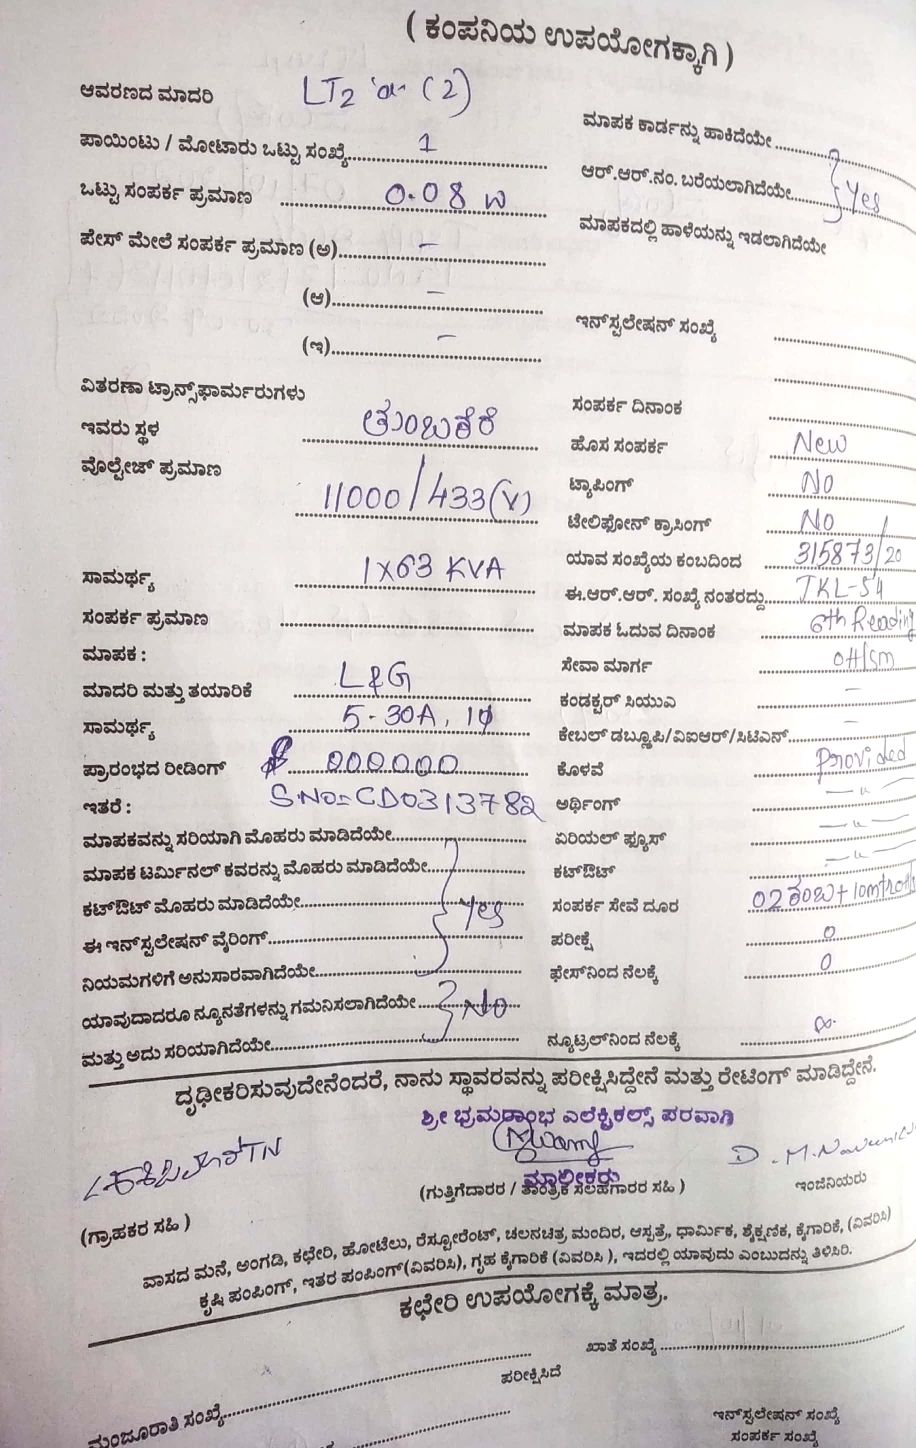 ( ಕಂಪನಿಯ ಉಪಯೋಗಕ್ಕಾಗಿ )
ಆವರಣದ ಮಾದರಿ LT2 (2)
ಪಾಯಿಂಟು / ಮೋಟಾರು ಒಟ್ಟು ಸಂಖ್ಯೆ 1
ಒಟ್ಟು ಸಂಪರ್ಕ ಪ್ರಮಾಣ 0.08 W
ಪೇಸ್ ಮೇಲೆ ಸಂಪರ್ಕ ಪ್ರಮಾಣ (ಅ) –
(ಆ) –
(ಇ) –
ವಿತರಣಾ ಟ್ರಾನ್ಸ್‌ಫಾರ್ಮರುಗಳು
ಇವರು ಸ್ಥಳ ತುಂಬಕೆರೆ
ವೊಲ್ಟೇಜ್ ಪ್ರಮಾಣ
11000/433(V)
ಸಾಮರ್ಥ್ಯ 1X63 KVA
ಸಂಪರ್ಕ ಪ್ರಮಾಣ
ಮಾಪಕ :
ಮಾದರಿ ಮತ್ತು ತಯಾರಿಕೆ L&G
ಸಾಮರ್ಥ್ಯ 5-30A, 1φ
ಪ್ರಾರಂಭದ ರೀಡಿಂಗ್ 000000
ಇತರೆ : S.No=CD0313782
ಮಾಪಕವನ್ನು ಸರಿಯಾಗಿ ಮೊಹರು ಮಾಡಿದೆಯೇ
ಮಾಪಕ ಟರ್ಮಿನಲ್ ಕವರನ್ನು ಮೊಹರು ಮಾಡಿದೆಯೇ
ಕಟ್‌ಔಟ್ ಮೊಹರು ಮಾಡಿದೆಯೇ Yes
ಈ ಇನ್‌ಸ್ಟಲೇಷನ್ ವೈರಿಂಗ್
ನಿಯಮಗಳಿಗೆ ಅನುಸಾರವಾಗಿದೆಯೇ
ಯಾವುದಾದರೂ ನ್ಯೂನತೆಗಳನ್ನು ಗಮನಿಸಲಾಗಿದೆಯೇ No
ಮತ್ತು ಅದು ಸರಿಯಾಗಿದೆಯೇ
ಮಾಪಕ ಕಾರ್ಡನ್ನು ಹಾಕಿದೆಯೇ
ಆರ್.ಆರ್.ನಂ. ಬರೆಯಲಾಗಿದೆಯೇ Yes
ಮಾಪಕದಲ್ಲಿ ಹಾಳೆಯನ್ನು ಇಡಲಾಗಿದೆಯೇ
ಇನ್‌ಸ್ಟಲೇಷನ್ ಸಂಖ್ಯೆ
ಸಂಪರ್ಕ ದಿನಾಂಕ
ಹೊಸ ಸಂಪರ್ಕ New
ಟ್ಯಾಪಿಂಗ್ No
ಟೇಲಿಫೋನ್ ಕ್ರಾಸಿಂಗ್ No
ಯಾವ ಸಂಖ್ಯೆಯ ಕಂಬದಿಂದ 315873/20
ಈ.ಆರ್.ಆರ್. ಸಂಖ್ಯೆ ನಂತರದ್ದು TKL-54
ಮಾಪಕ ಓದುವ ದಿನಾಂಕ 6th Reading
ಸೇವಾ ಮಾರ್ಗ OH/SM
ಕಂಡಕ್ಟರ್ ಸಿಯುಎ –
ಕೇಬಲ್ ಡಬ್ಲೂಪಿ/ವಿಐಆರ್/ಸಿಟಿಎನ್ –
ಕೊಳವೆ Provided
ಅರ್ಥಿಂಗ್ –"–
ಏರಿಯಲ್ ಫ್ಯೂಸ್ –"–
ಕಟ್‌ಔಟ್ –"–
ಸಂಪರ್ಕ ಸೇವೆ ದೂರ 02 ಕಂಬ + 10mtr
ಪರೀಕ್ಷೆ 0
ಫೇಸ್‌ನಿಂದ ನೆಲಕ್ಕೆ 0
ನ್ಯೂಟ್ರಲ್‌ನಿಂದ ನೆಲಕ್ಕೆ ∞
ದೃಢೀಕರಿಸುವುದೇನೆಂದರೆ, ನಾನು ಸ್ಥಾವರವನ್ನು ಪರೀಕ್ಷಿಸಿದ್ದೇನೆ ಮತ್ತು ರೇಟಿಂಗ್ ಮಾಡಿದ್ದೇನೆ.
ಶ್ರೀ ಭ್ರಮರಾಂಭ ಎಲೆಕ್ಟ್ರಿಕಲ್ಸ್ ಪರವಾಗಿ
ಮಾಲೀಕರು
(ಗ್ರಾಹಕರ ಸಹಿ )
(ಗುತ್ತಿಗೆದಾರರ / ತಾಂತ್ರಿಕ ಸಲಹಗಾರರ ಸಹಿ )
ಇಂಜಿನಿಯರು
ವಾಸದ ಮನೆ, ಅಂಗಡಿ, ಕಛೇರಿ, ಹೋಟೆಲು, ರೆಸ್ಟೋರೆಂಟ್, ಚಲನಚಿತ್ರ ಮಂದಿರ, ಆಸ್ಪತ್ರೆ, ಧಾರ್ಮಿಕ, ಶೈಕ್ಷಣಿಕ, ಕೈಗಾರಿಕೆ, (ವಿವರಿಸಿ)
ಕೃಷಿ ಪಂಪಿಂಗ್, ಇತರ ಪಂಪಿಂಗ್(ವಿವರಿಸಿ), ಗೃಹ ಕೈಗಾರಿಕೆ (ವಿವರಿಸಿ ), ಇದರಲ್ಲಿ ಯಾವುದು ಎಂಬುದನ್ನು ತಿಳಿಸಿರಿ.
ಕಛೇರಿ ಉಪಯೋಗಕ್ಕೆ ಮಾತ್ರ.
ಖಾತೆ ಸಂಖ್ಯೆ
ಪರೀಕ್ಷಿಸಿದೆ
ಮಂಜೂರಾತಿ ಸಂಖ್ಯೆ
ಇನ್‌ಸ್ಟಲೇಷನ್ ಸಂಖ್ಯೆ
ಸಂಪರ್ಕ ಸಂಖ್ಯೆ